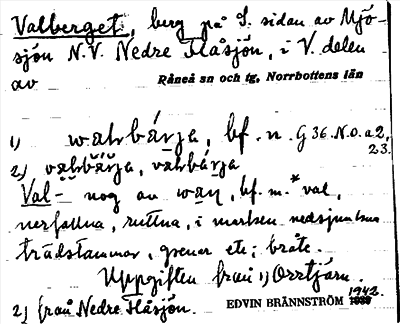 Valberget, berg på S. sidan av Mjö-
sjön N.V. Nedre Flåsjön, i V. delen
av
Råneå sn och tg, Norrbottens län
1) bf. n. G 36. N.O. a 2,
23.
2)
Val- nog av bf. m. *val,
nerfallna, ruttna, i marken nedsjunkna
trädstammar, grenar etc; bråte.
Uppgiften från 1) Orrtjärn.
2) från Nedre Flåsjön.
EDVIN BRÄNNSTRÖM 1942.